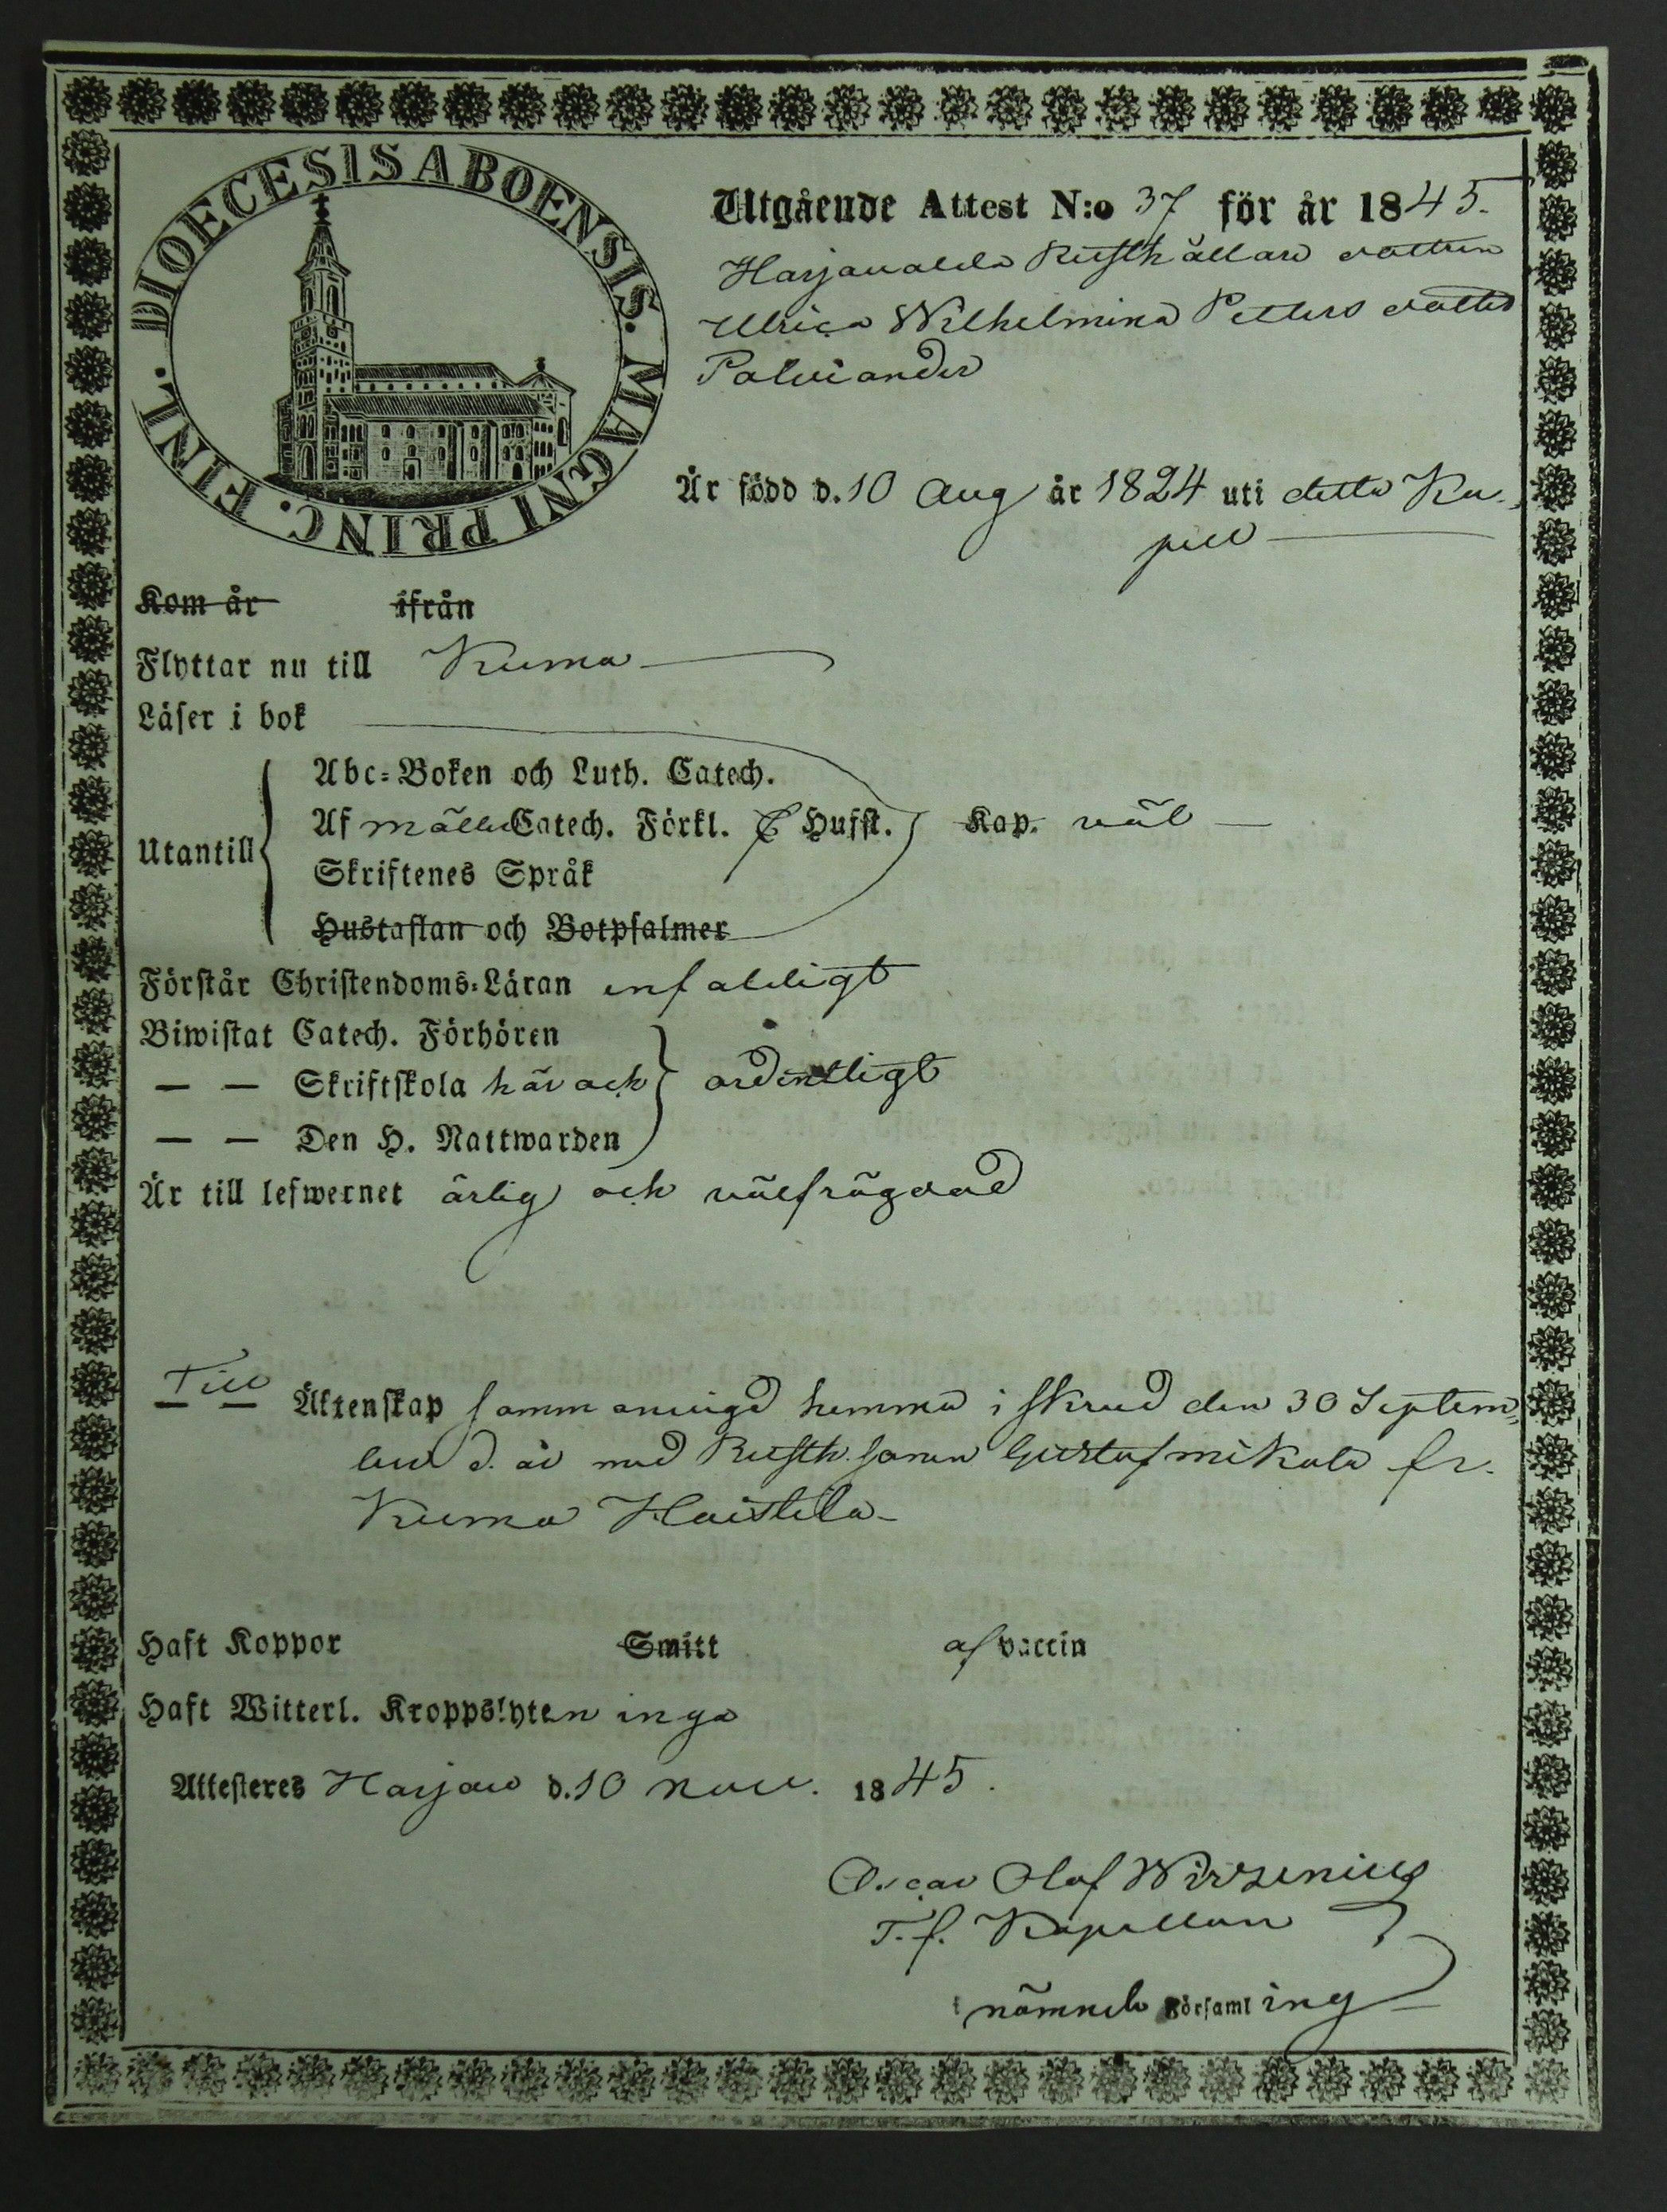 DIOECESIS ABOENSIS. MAGNI PRINC. FINL.
Utgående Attest N:o 37 för år 1845.
Harjavalda Rusthållare dottren
Ulrica Wilhelmina Petters dotter
Palviander
Är född d. 10 Aug år 1824 uti detta Ka-
pell
Kom år ifrån
Flyttar nu till Kumo
Läser i bok
Abc-Boken och Luth. Catech.
Utantill Af Catech. Förkl. & Hufst. Kap. väl
Skriftenes Språk
Hustaflan och Botpsalmer
Förstår Christendoms-Läran enfaldigt
Biwistat Catech. Förhören
— — Skriftskola här och ordentligt
— — Den H. Nattwarden
Är till lefwernet ärlig och välfrägdad
Till Äktenskap sammanvigd hemma i Skrud den 30 Septem-
ber d. år med Rusth. sonen Gustaf Mikola fr.
Kumo Haistila
Haft Koppor Smitt af vaccin
Haft Witterl. Kroppslyten inga
Attesteres Harjav d. 10 Nov. 1845.
Oscar Olof Wirzenius
T.f. Kapellan
i nämnde Församling